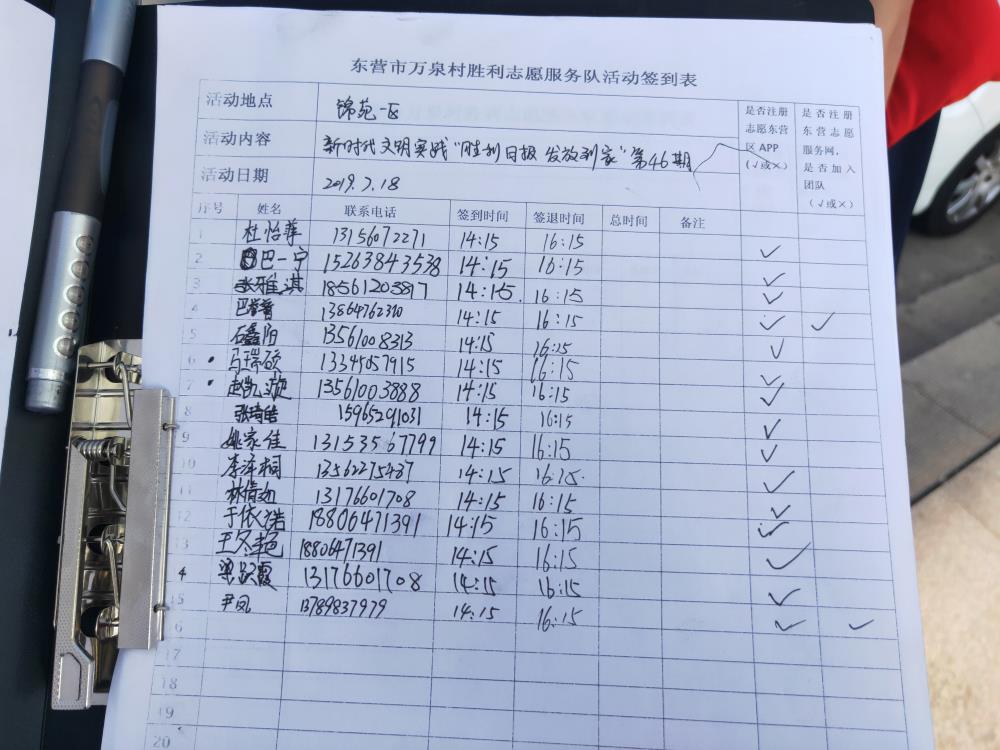 东营市万泉村胜利志愿服务队活动签到表
活动地点 锦苑一区
是否注册志愿东营区APP(√或×)
是否注册东营志愿服务网,是否加入团队(√或×)
活动内容 新时代文明实践"胜利日报 发放到家"第46期
活动日期 2019.7.18
序号 姓名 联系电话 签到时间 签退时间 总时间 备注
1 杜怡菲 13156072271 14:15 16:15
2 巴一宁 15263843538 14:15 16:15 ✓
3 张雅淇 18561203817 14:15 16:15 ✓
4 13864762310 14:15 16:15 ✓
5 石鑫阳 13561008313 14:15 16:15 ✓ ✓
6 马瑞硕 13345057915 14:15 16:15 ✓
7 赵凯璇 13561003888 14:15 16:15 ✓
8 张琦皓 15965291031 14:15 16:15 ✓
9 姚家佳 13153567799 14:15 16:15 ✓
10 李泽桐 13562275437 14:15 16:15 ✓
11 林倩如 13176601708 14:15 16:15 ✓
12 于依诺 18806471391 14:15 16:15 ✓
13 王冬艳 18806471391 14:15 16:15 ✓
4 梁跃霞 13176601708 14:15 16:15 ✓
15 尹凤 13789837979 14:15 16:15 ✓
16 ✓ ✓
17
18
19
20